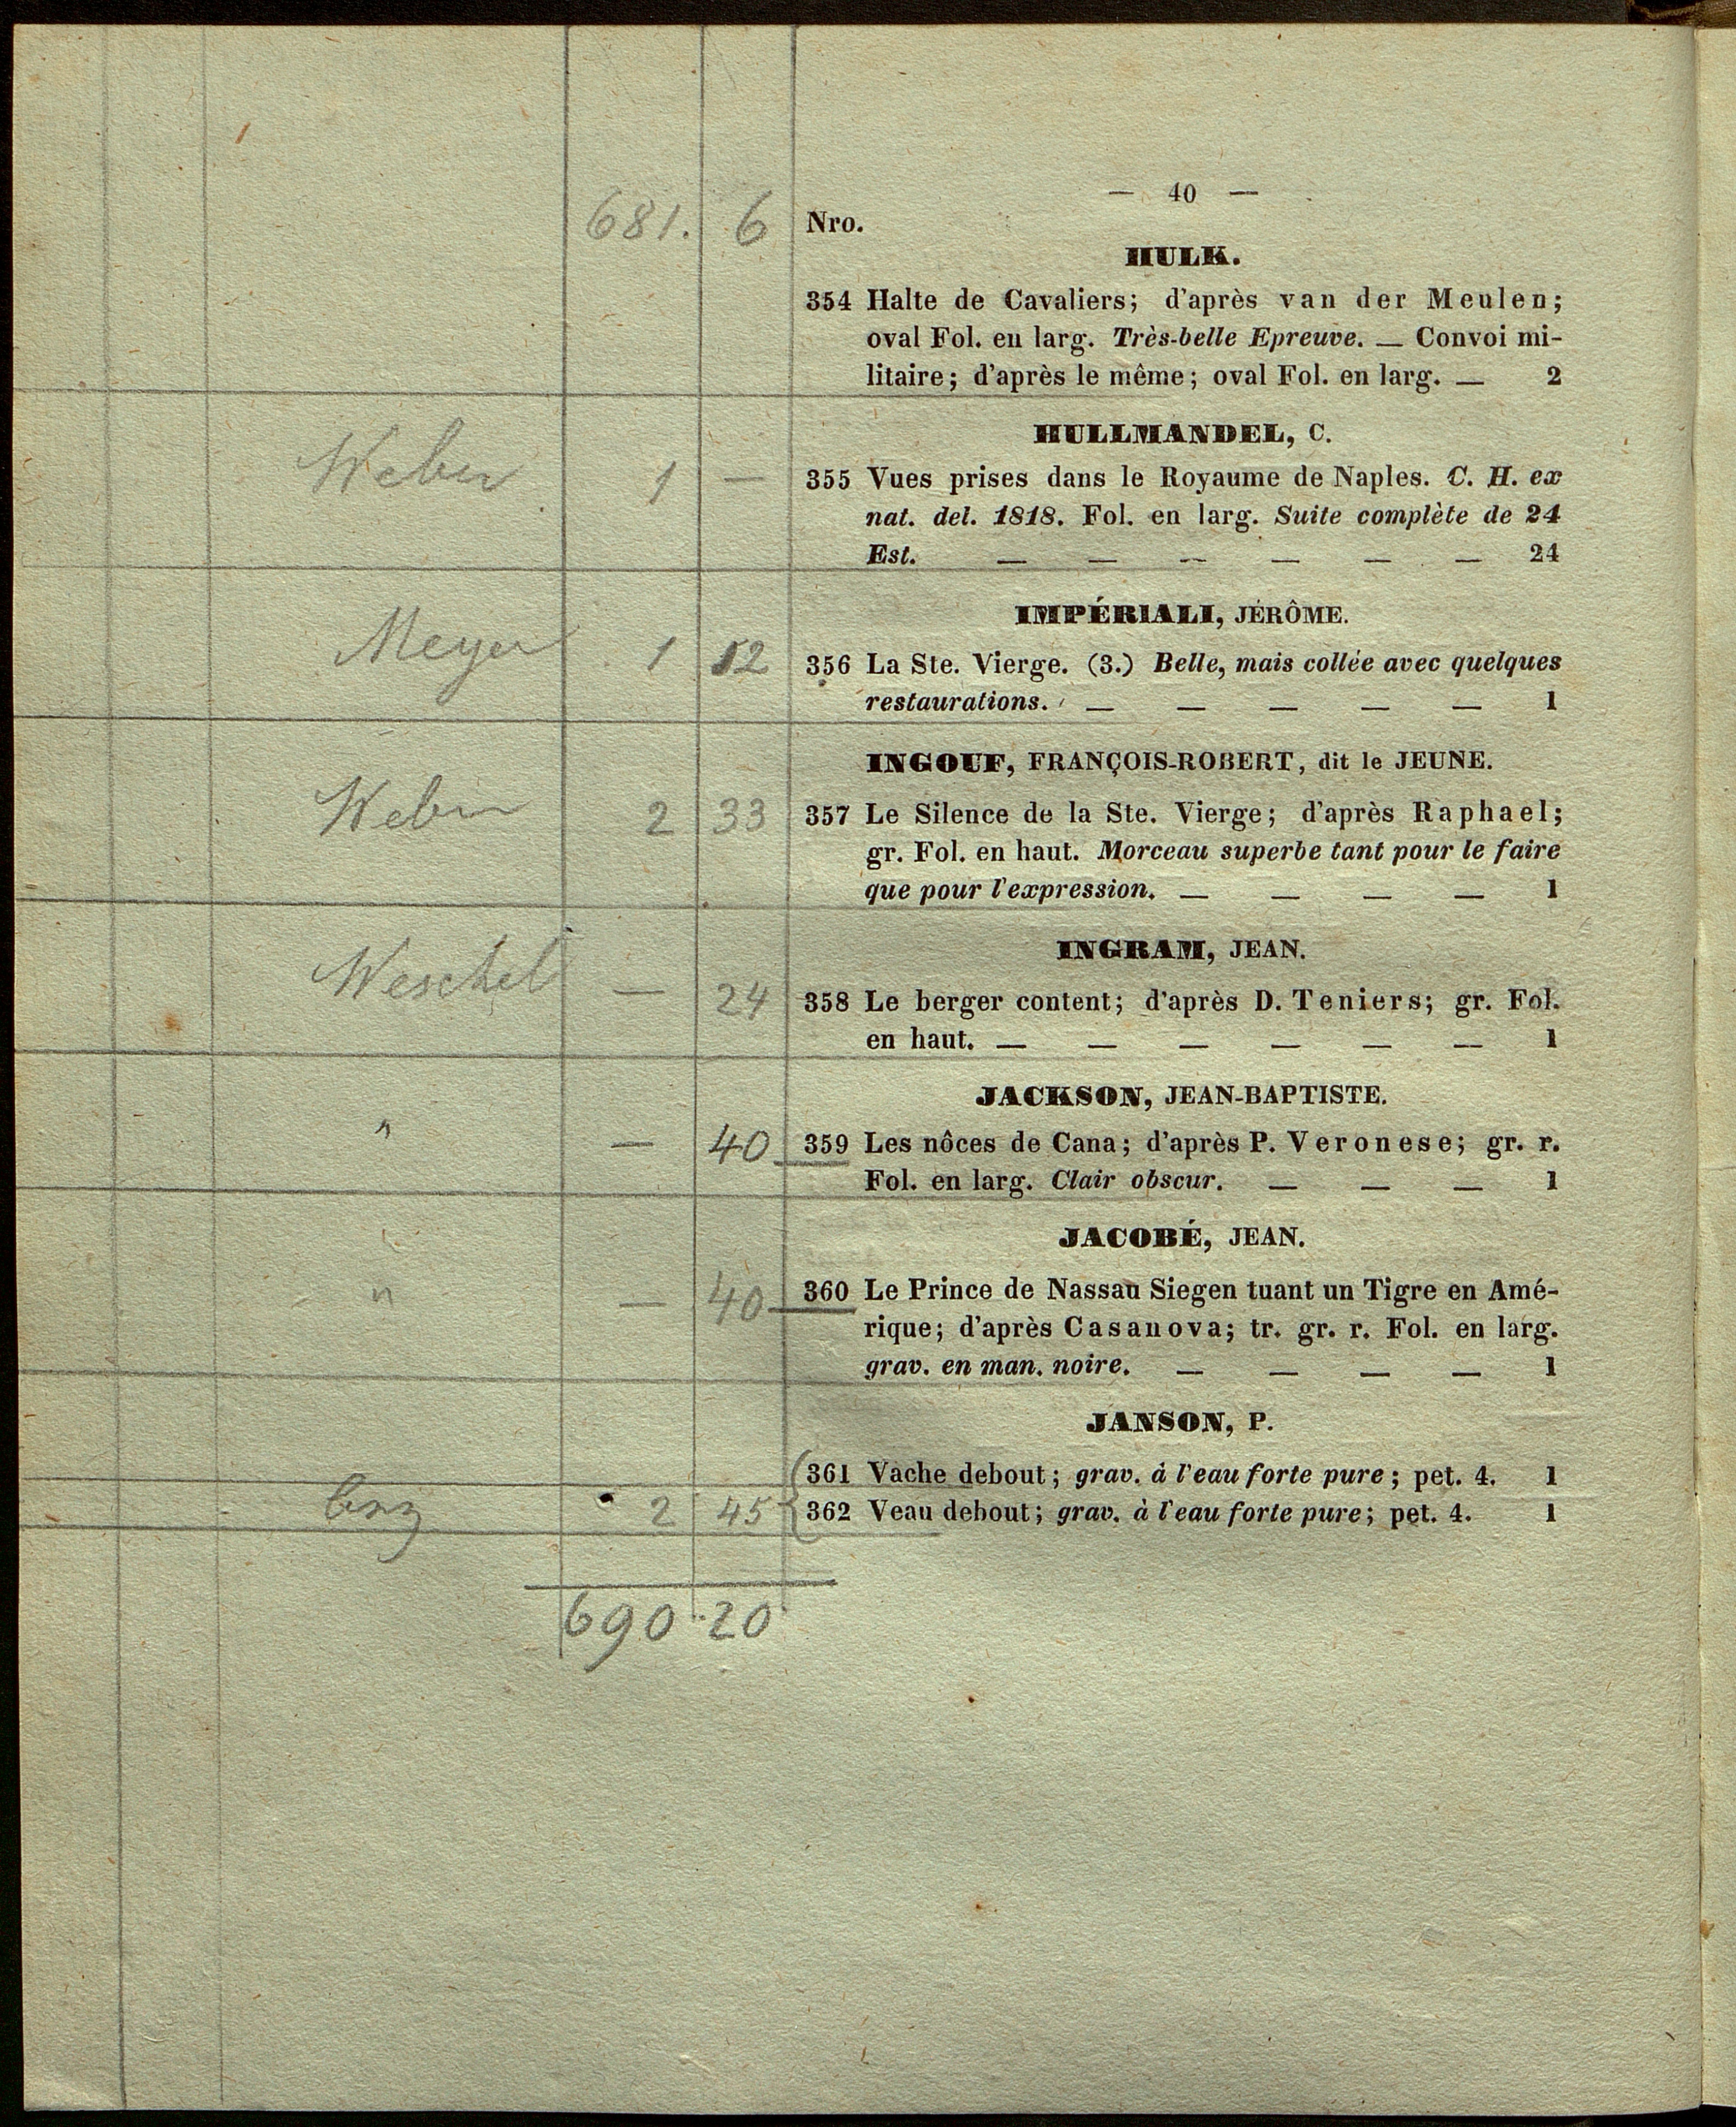 — 40 —
681. 6 Nro.
HULK.
354 Halte de Cavaliers; d'après van der Meulen;
oval Fol. en larg. Très-belle Epreuve. — Convoi mi-
litaire; d'après le même; oval Fol. en larg. — 2
HULLMANDEL, C.
Weber 1 — 355 Vues prises dans le Royaume de Naples. C. H. ex
nat. del. 1818. Fol. en larg. Suite complète de 24
Est. — — — — — — 24
IMPÉRIALI, JÉRÔME.
Meyer 1 12 356 La Ste. Vierge. (3.) Belle, mais collée avec quelques
restaurations. — — — — — 1
INGOUF, FRANÇOIS-ROBERT, dit le JEUNE.
Weber 2 33 357 Le Silence de la Ste. Vierge; d'après Raphael;
gr. Fol. en haut. Morceau superbe tant pour le faire
que pour l'expression. — — — — 1
INGRAM, JEAN.
Weschel — 24 358 Le berger content; d'après D. Teniers; gr. Fol.
en haut. — — — — — — 1
JACKSON, JEAN-BAPTISTE.
" — 40 359 Les nôces de Cana; d'après P. Veronese; gr. r.
Fol. en larg. Clair obscur. — — — 1
JACOBÉ, JEAN.
" — 40 360 Le Prince de Nassau Siegen tuant un Tigre en Amé-
rique; d'après Casanova; tr. gr. r. Fol. en larg.
grav. en man. noire. — — — — 1
JANSON, P.
361 Vache debout; grav. à l'eau forte pure; pet. 4. 1
2 45 362 Veau debout; grav. à l'eau forte pure; pet. 4. 1
690 20